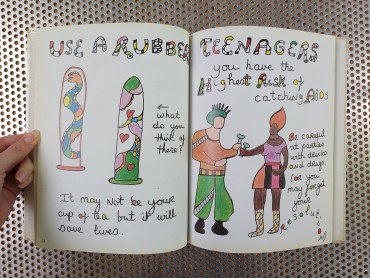 USE A RUBBER
← what
do you
think of
these?
It may not be your
cup of tea but it will
save lives.
TEENAGERS
you have the
Highest Risk of
catching AIDS
Be careful
at parties
with drinks
and drugs
for you
may forget
your
resolution